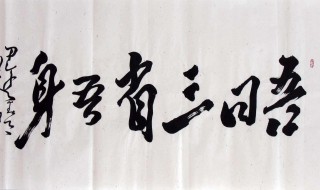 吾日三省吾身